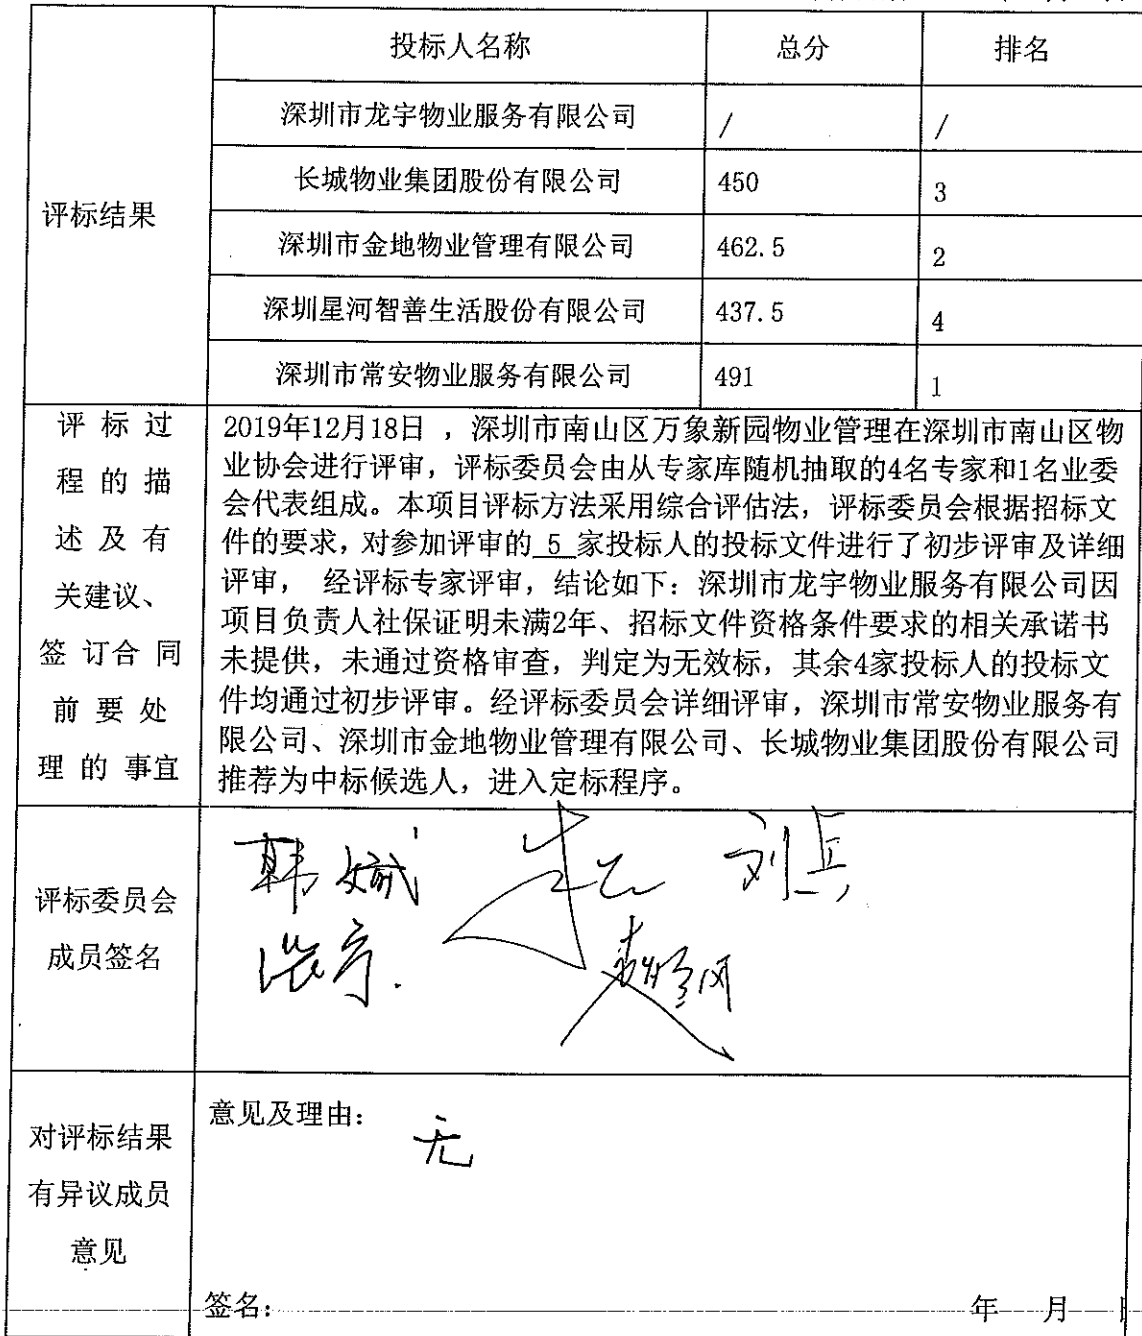 投标人名称 总分 排名
深圳市龙宇物业服务有限公司 / /
长城物业集团股份有限公司 450 3
评标结果
深圳市金地物业管理有限公司 462.5 2
深圳星河智善生活股份有限公司 437.5 4
深圳市常安物业服务有限公司 491 1
评标过
程的描
述及有
关建议、
签订合同
前要处
理的事宜
2019年12月18日，深圳市南山区万象新园物业管理在深圳市南山区物
业协会进行评审，评标委员会由从专家库随机抽取的4名专家和1名业委
会代表组成。本项目评标方法采用综合评估法，评标委员会根据招标文
件的要求，对参加评审的 5 家投标人的投标文件进行了初步评审及详细
评审， 经评标专家评审，结论如下：深圳市龙宇物业服务有限公司因
项目负责人社保证明未满2年、招标文件资格条件要求的相关承诺书
未提供，未通过资格审查，判定为无效标，其余4家投标人的投标文
件均通过初步评审。经评标委员会详细评审，深圳市常安物业服务有
限公司、深圳市金地物业管理有限公司、长城物业集团股份有限公司
推荐为中标候选人，进入定标程序。
评标委员会
成员签名
韩斌
对评标结果
有异议成员
意见
意见及理由：
无
签名： 年 月